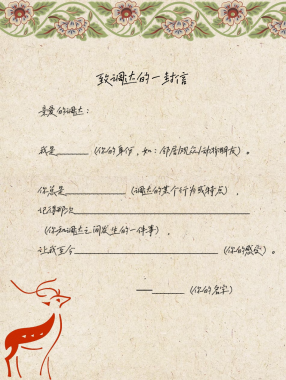 致调达的一封信
亲爱的调达：
我是______（你的身份，如：邻居/观众/动物朋友）。
你总是____________（调达的某个行为或特点），
记得那次______________________________
（你和调达之间发生的一件事），
让我至今__________________________（你的感受）。
——______（你的名字）